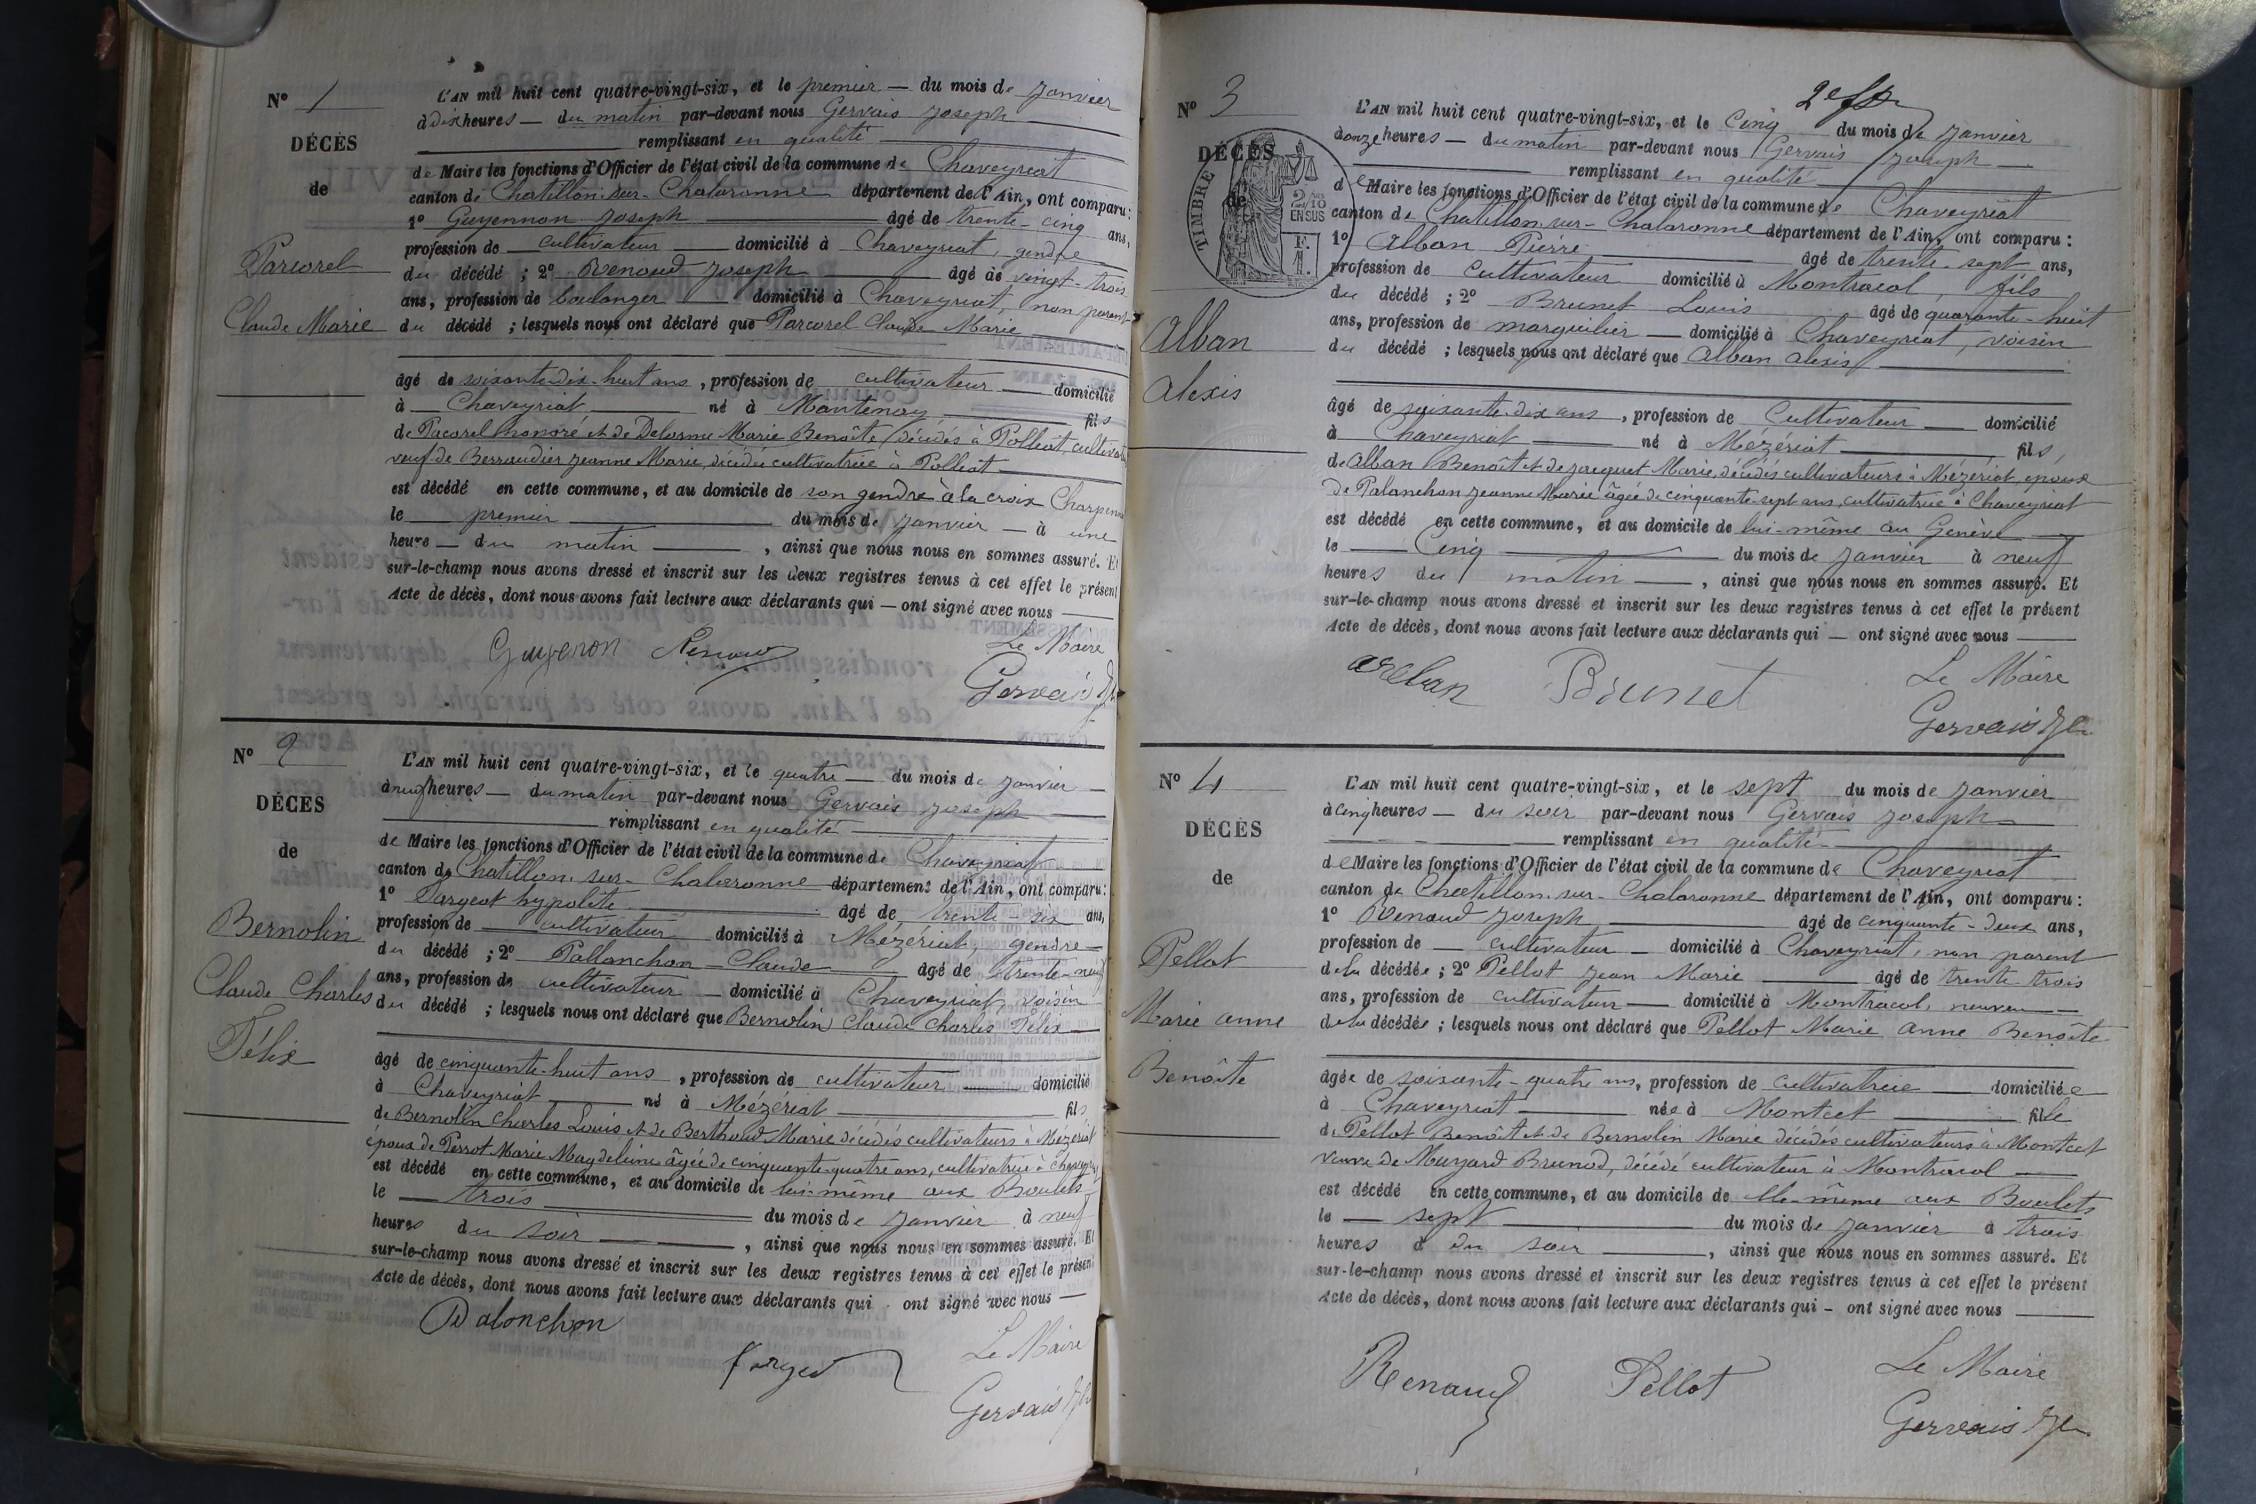 N° 1
DÉCÈS
de
Parcorel
Claude Marie
L'AN mil huit cent quatre-vingt-six, et le premier — du mois de janvier
à dix heures — du matin par-devant nous Gervais Joseph
remplissant en qualité
de Maire les fonctions d'Officier de l'état civil de la commune de Chaveyriat
canton de Chatillon-sur-Chalaronne département de l'Ain, ont comparu :
1° Guyennon Joseph âgé de trente-cinq ans,
profession de cultivateur domicilié à Chaveyriat, gendre
du décédé ; 2° Renaud Joseph âgé de vingt-trois
ans, profession de boulanger domicilié à Chaveyriat, non parent
du décédé ; lesquels nous ont déclaré que Parcorel Claude Marie
âgé de soixante-dix-huit ans, profession de cultivateur domicilié
à Chaveyriat né à Mantenay fils
de Pacorel honoré et de Delorme Marie Benoîte décédés à Polliat, cultivat
veuf de Berraudier Jeanne Marie, décédée cultivatrice à Polliat
est décédé en cette commune, et au domicile de son gendre à la croix Charpenne
le premier du mois de janvier — à une
heure — du matin, ainsi que nous nous en sommes assuré. Et
sur-le-champ nous avons dressé et inscrit sur les deux registres tenus à cet effet le présent
Acte de décès, dont nous avons fait lecture aux déclarants qui — ont signé avec nous
Guyenon Renaud Le Maire
Gervais
N° 2
DÉCÈS
de
Bernolin
Claude Charles
Félix
L'AN mil huit cent quatre-vingt-six, et le quatre — du mois de janvier
à neuf heures — du matin par-devant nous Gervais Joseph
remplissant en qualité
de Maire les fonctions d'Officier de l'état civil de la commune de Chaveyriat
canton de Chatillon-sur-Chalaronne département de l'Ain, ont comparu :
1° Fargeot hypolite âgé de trente-six ans,
profession de cultivateur domicilié à Mézériat, gendre
du décédé ; 2° Pallanchon Claude âgé de trente-neuf
ans, profession de cultivateur — domicilié à Chaveyriat, voisin
du décédé ; lesquels nous ont déclaré que Bernolin Claude Charles Félix
âgé de cinquante-huit ans, profession de cultivateur domicilié
à Chaveyriat né à Mézériat fils
de Bernolin Charles Louis et de Berthoud Marie décédés cultivateurs à Mézériat
époux de Perrot Marie Magdeleine âgée de cinquante-quatre ans, cultivatrice à Chaveyriat
est décédé en cette commune, et au domicile de lui-même aux Boulets
le trois du mois de janvier à neuf
heures du soir, ainsi que nous nous en sommes assuré. Et
sur-le-champ nous avons dressé et inscrit sur les deux registres tenus à cet effet le présent
Acte de décès, dont nous avons fait lecture aux déclarants qui ont signé avec nous
Palonchon
Le Maire
Gervais
N° 3
DÉCÈS
de
TIMBRE
2/10
EN SUS
Alban
Alexis
L'AN mil huit cent quatre-vingt-six, et le cinq du mois de janvier
à onze heures — du matin par-devant nous Gervais Joseph
remplissant en qualité
de Maire les fonctions d'Officier de l'état civil de la commune de Chaveyriat
canton de Chatillon-sur-Chalaronne département de l'Ain, ont comparu :
1° Alban Pierre âgé de trente-sept ans,
profession de cultivateur domicilié à Montracol, fils
du décédé ; 2° Brunet Louis âgé de quarante-huit
ans, profession de marguilier — domicilié à Chaveyriat, voisin
du décédé ; lesquels nous ont déclaré que Alban Alexis
âgé de soixante-dix ans, profession de Cultivateur domicilié
à Chaveyriat né à Mézériat fils,
de Alban Benoît et de Jacquet Marie, décédés cultivateurs à Mézériat, époux
de Palanchon Jeanne Marie âgée de cinquante-sept ans, cultivatrice à Chaveyriat
est décédé en cette commune, et au domicile de lui-même au Genève
le Cinq du mois de janvier à neuf
heures du matin, ainsi que nous nous en sommes assuré. Et
sur-le-champ nous avons dressé et inscrit sur les deux registres tenus à cet effet le présent
Acte de décès, dont nous avons fait lecture aux déclarants qui — ont signé avec nous
Brunet Le Maire
Gervais
N° 4
DÉCÈS
de
Pellot
Marie anne
Benoîte
L'AN mil huit cent quatre-vingt-six, et le sept du mois de janvier
à cinq heures — du soir par-devant nous Gervais Joseph
remplissant en qualité
de Maire les fonctions d'Officier de l'état civil de la commune de Chaveyriat
canton de Chatillon-sur-Chalaronne département de l'Ain, ont comparu :
1° Renaud Joseph âgé de cinquante-deux ans,
profession de cultivateur — domicilié à Chaveyriat, non parent
de la décédée ; 2° Pellot Jean Marie âgé de trente trois
ans, profession de cultivateur — domicilié à Montracol, neveu
de la décédée ; lesquels nous ont déclaré que Pellot Marie anne Benoîte
âgée de soixante-quatre ans, profession de cultivatrice domiciliée
à Chaveyriat née à Montcet fille
de Pellot Benoît et de Bernolin Marie décédés cultivateurs à Montcet
veuve de Mugard Brunod, décédé cultivateur à Montracol
est décédé en cette commune, et au domicile de elle-même aux Boulets
le — sept du mois de janvier à trois
heures du soir, ainsi que nous nous en sommes assuré. Et
sur-le-champ nous avons dressé et inscrit sur les deux registres tenus à cet effet le présent
Acte de décès, dont nous avons fait lecture aux déclarants qui — ont signé avec nous
Renaud Pellot Le Maire
Gervais